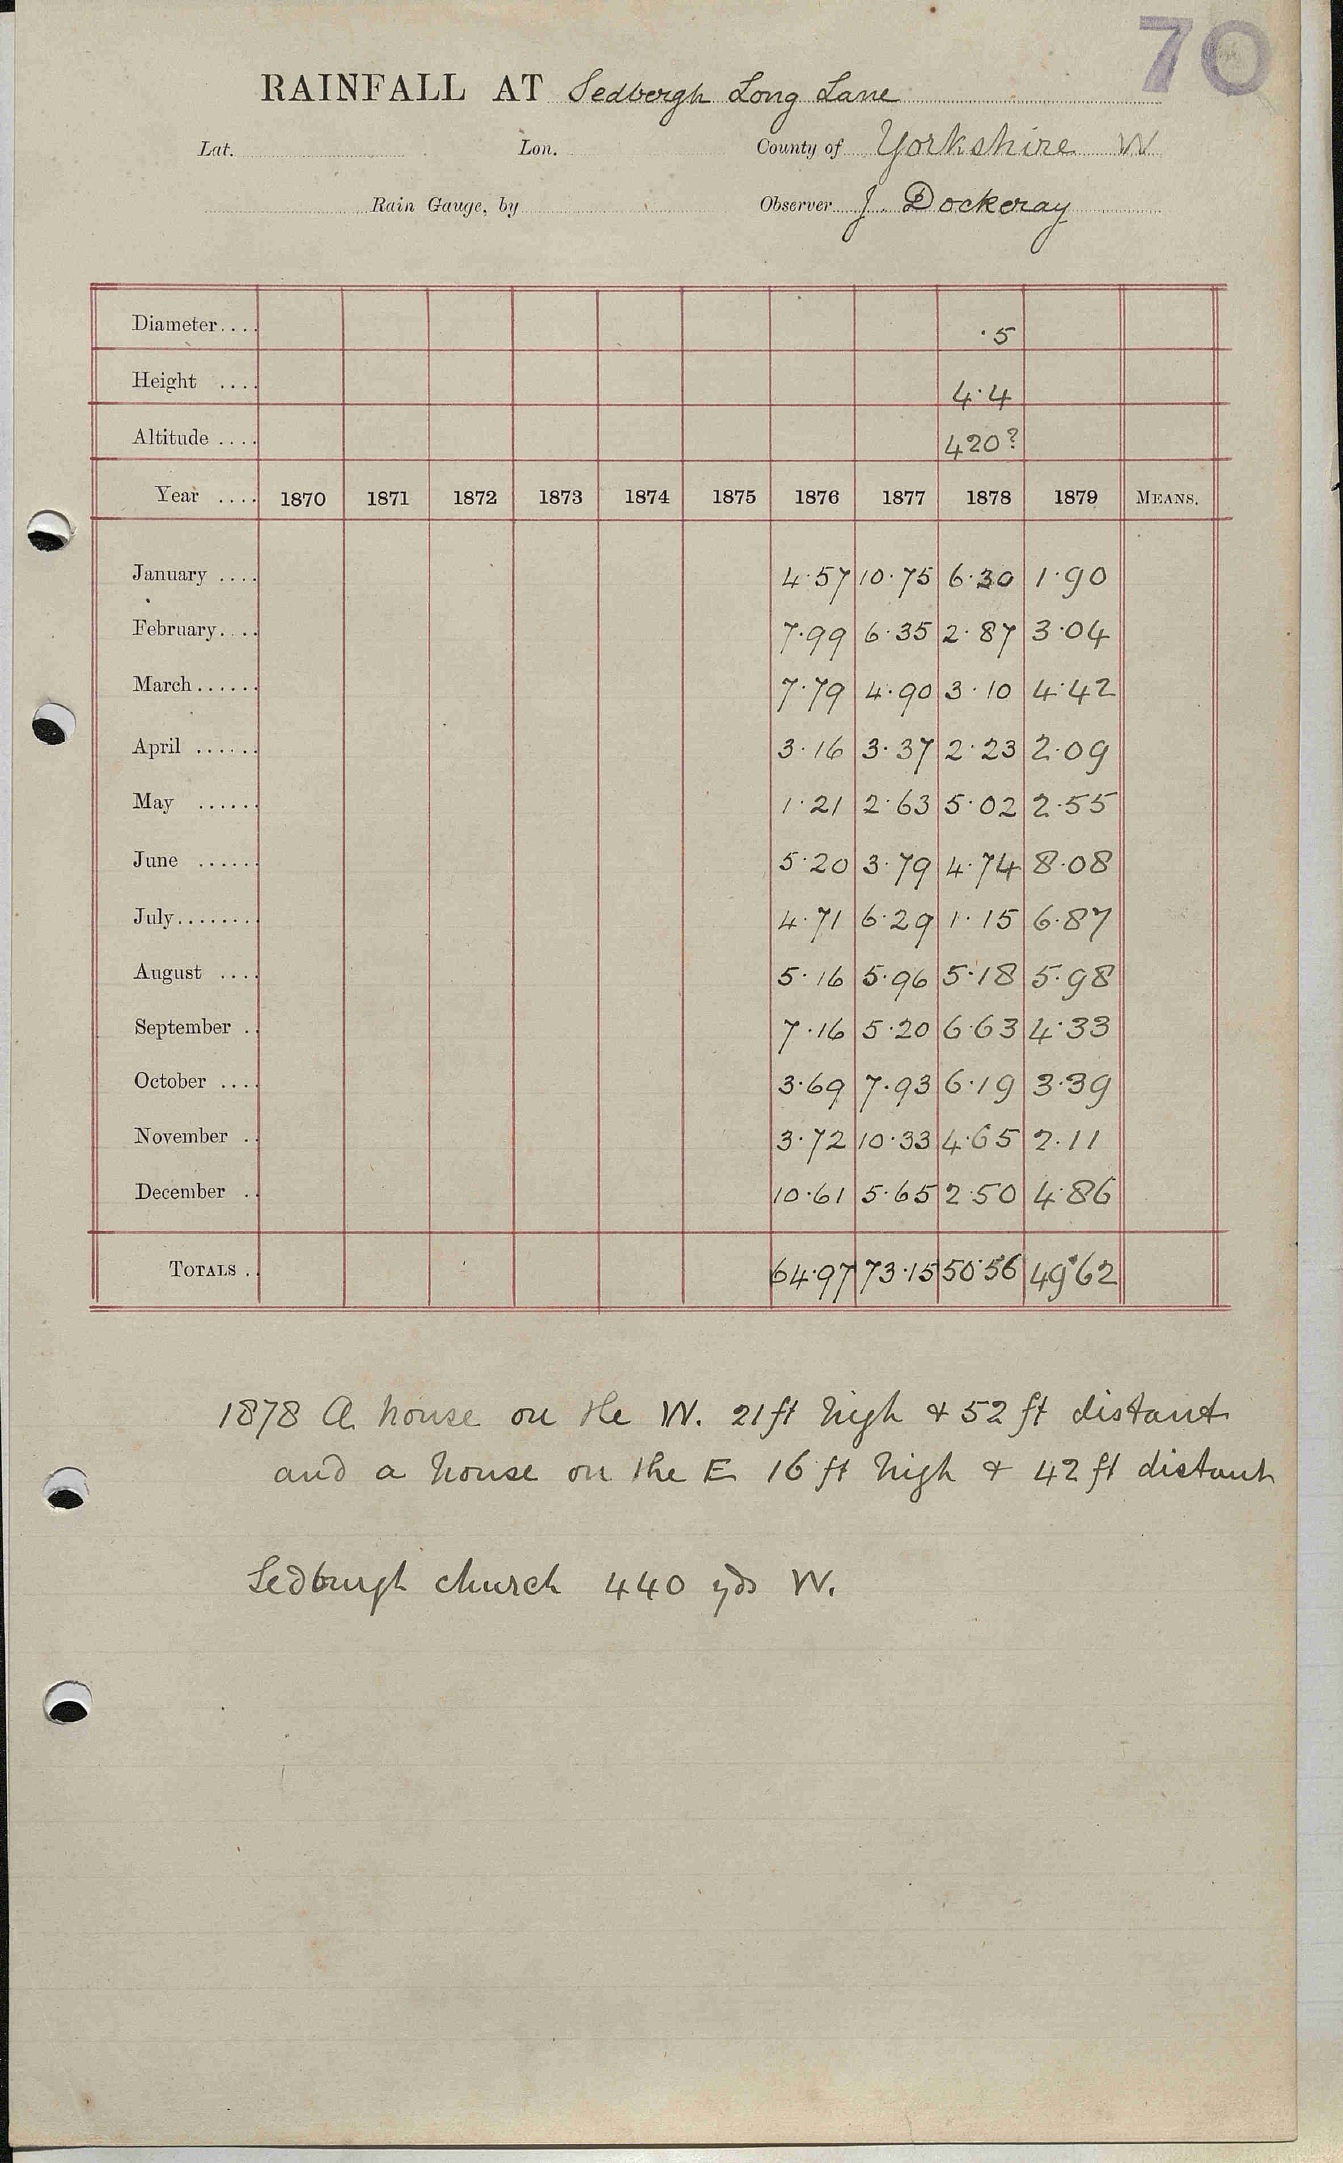 70
RAINFALL AT Sedbergh Long Lane
Lat. Lon. County of Yorkshire W
Rain Gauge, by Observer J. Dockeray
Diameter.... ·5
Height .... 4·4
Altitude .... 420?
Year .... 1870 1871 1872 1873 1874 1875 1876 1877 1878 1879 MEANS.
January .... 4·57 10·75 6·30 1·90
February.... 7·99 6·35 2·87 3·04
March...... 7·79 4·90 3·10 4·42
April ...... 3·16 3·37 2·23 2·09
May ...... 1·21 2·63 5·02 2·55
June ...... 5·20 3·79 4·74 8·08
July........ 4·71 6·29 1·15 6·87
August .... 5·16 5·96 5·18 5·98
September .. 7·16 5·20 6·63 4·33
October .... 3·69 7·93 6·19 3·39
November .. 3·72 10·33 4·65 2·11
December .. 10·61 5·65 2·50 4·86
TOTALS .. 64·97 73·15 50·56 49·62
1878 A house on the W. 21 ft high & 52 ft distant
and a house on the E 16 ft high & 42 ft distant
Sedburgh church 440 yds W.